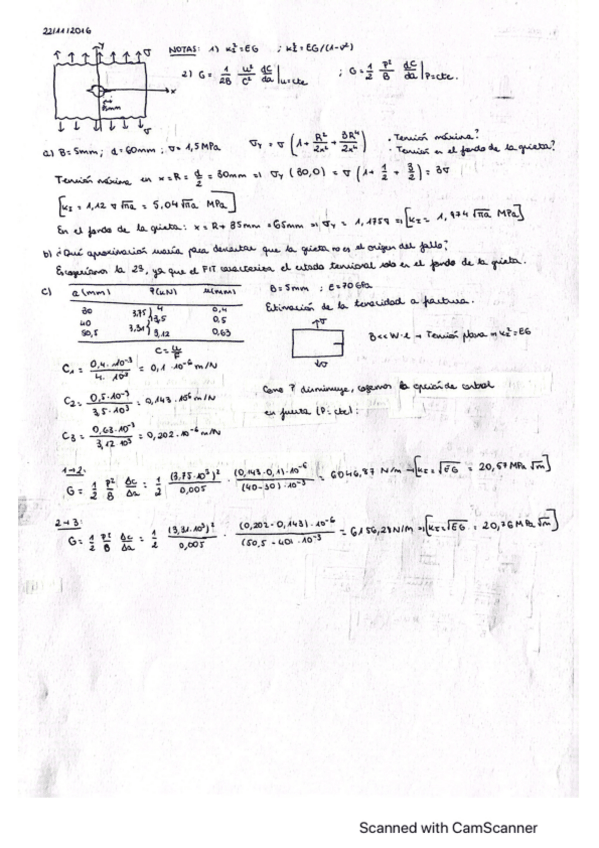 22/11/2016
NOTAS: 1) K_I² = EG ; K_I² = EG/(1-ν²)
2) G = 1/2B u²/C² dC/da |u=cte ; G = 1/2 P²/B dC/da |P=cte.
y σ
x
σ
a) B = 5mm ; d = 60mm ; σ = 1,5 MPa σy = σ (1 + R²/2x² + 3R⁴/2x⁴) · Tensión máxima?
· Tensión en el fondo de la grieta?
Tensión máxima en x = R = d/2 = 30mm ⇒ σy (30,0) = σ (1 + 1/2 + 3/2) = 3σ
[K_I = 1,12 σ √πa = 5,04 √πa MPa]
En el fondo de la grieta: x = R + 35mm = 65mm ⇒ σy = 1,175σ ⇒ [K_I = 1,974 √πa MPa]
b) ¿Qué aproximación usaría para demostrar que la grieta no es el origen del fallo?
Escogeríamos la 2ª, ya que el FIT caracteriza el estado tensional solo en el fondo de la grieta.
c) a(mm) P(kN) u(mm) B = 5mm ; E = 70 GPa
30 4 0,4 Estimación de la tenacidad a fractura.
3,75
40 3,5 0,5
3,31
50,5 3,12 0,63
B << W-L → Tensión plana ⇒ K_I² = EG
σ
σ
C = u/P
C₁ = 0,4·10⁻³ / 4·10³ = 0,1·10⁻⁶ m/N
C₂ = 0,5·10⁻³ / 3,5·10³ = 0,143·10⁻⁶ m/N
Como P disminuye, cogemos la opción de control
en fuerza (P = cte):
C₃ = 0,63·10⁻³ / 3,12·10³ = 0,202·10⁻⁶ m/N
1→2:
G = 1/2 P²/B ΔC/Δa = 1/2 (3,75·10³)²/0,005 · (0,143-0,1)·10⁻⁶/(40-30)·10⁻³ = 6046,87 N/m → [K_I = √EG = 20,57 MPa √m]
2→3:
G = 1/2 P²/B ΔC/Δa = 1/2 (3,31·10³)²/0,005 · (0,202-0,143)·10⁻⁶/(50,5-40)·10⁻³ = 6156,28 N/m ⇒ [K_I = √EG = 20,76 MPa √m]
Scanned with CamScanner